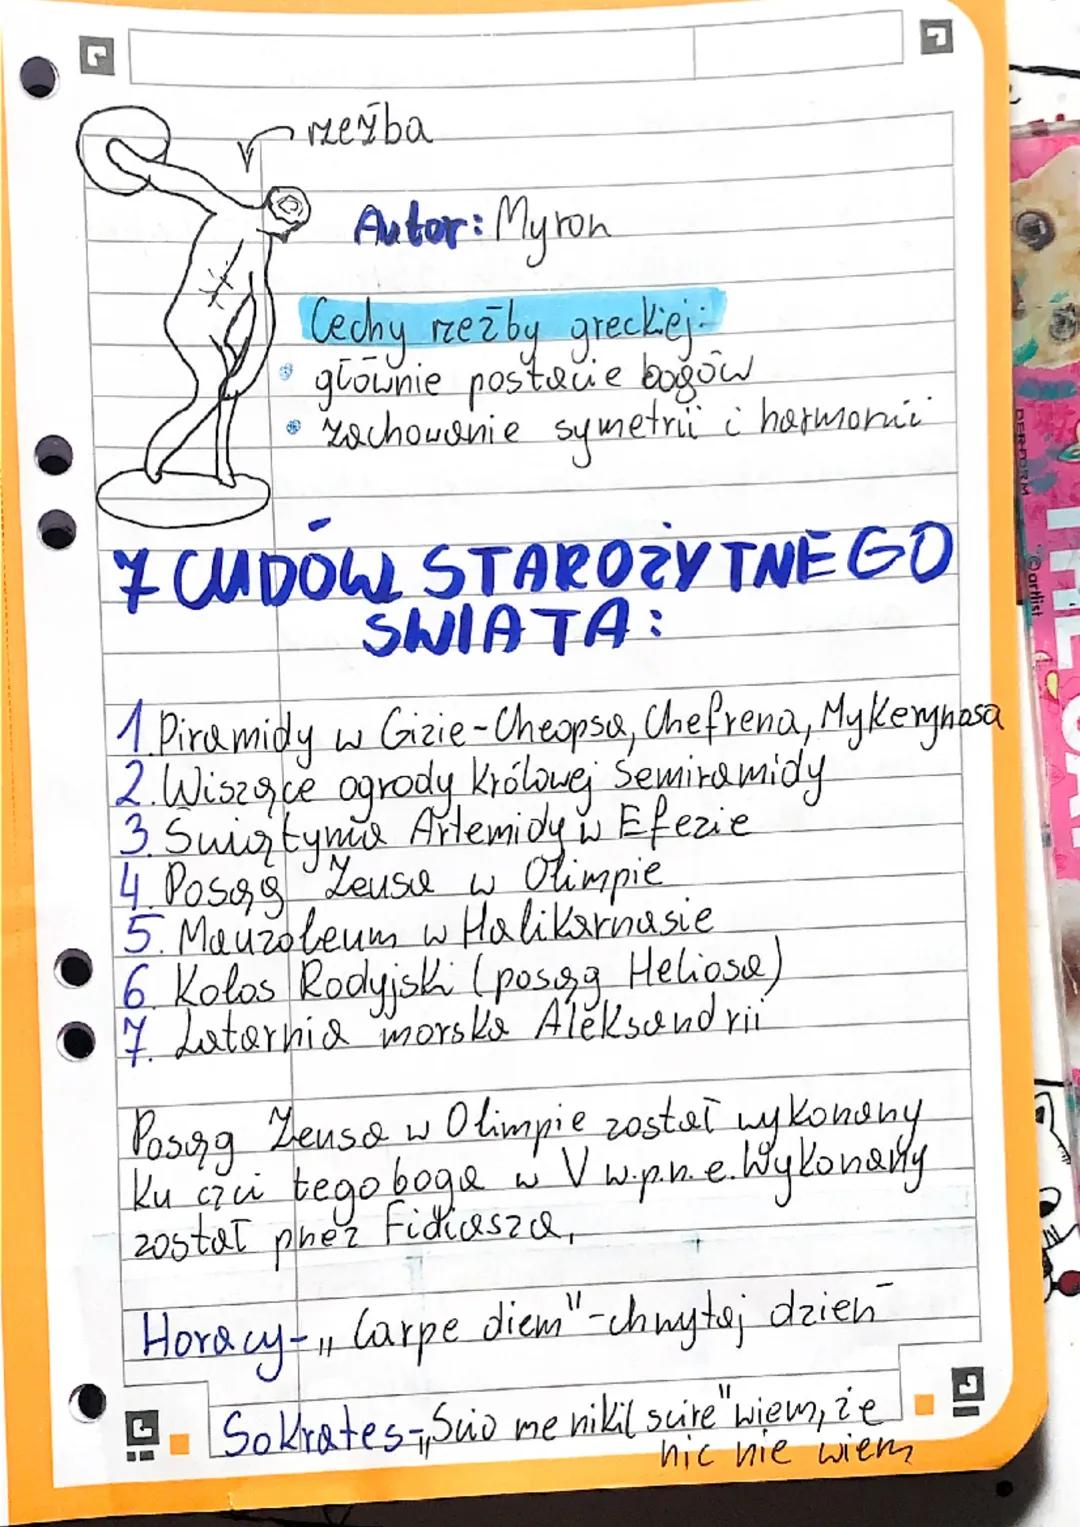 rzeźba
Autor: Myron
Cechy rzeźby greckiej:
głównie postacie bogów
zachowanie symetrii i harmonii
7 CUDÓW STAROŻYTNEGO
ŚWIATA:
1. Piramidy w Gizie - Cheopsa, Chefrena, Mykerynosa
2. Wiszące ogrody królowej Semiramidy
3. Świątynia Artemidy w Efezie
4. Posąg Zeusa w Olimpie
5. Mauzoleum w Halikarnasie
6. Kolos Rodyjski (posąg Heliosa)
7. Latarnia morska Aleksandrii
Posąg Zeusa w Olimpie został wykonany
ku czci tego boga w V w.p.n.e. Wykonany
został przez Fidiasza,
Horacy - „Carpe diem" - chwytaj dzień
Sokrates - „Scio me nikil scire" wiem, że
nic nie wiem
DERFORM
©artlist